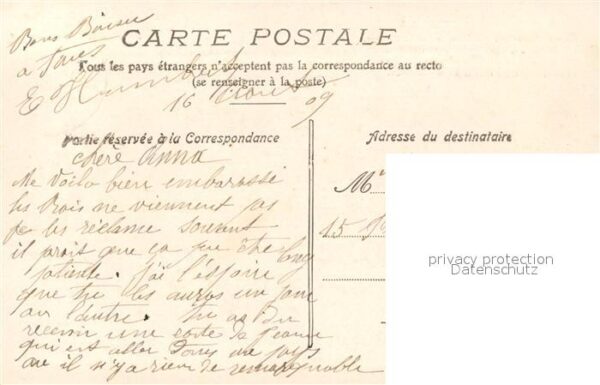 Bons Baiser
a Tous
E Humbert
CARTE POSTALE
Tous les pays étrangers n'acceptent pas la correspondance au recto
(se renseigner à la poste)
16 Aout 09
Partie réservée à la Correspondance
Adresse du destinataire
chere Anna
Me voila bien embarassé
les vrois ne viennent pas
je les réclame souvent
il proit que ça que
patiente. j'ai l'espoire
que tu les auras un jour
au l'autre. tu as du
recevoir une carte de Jeanne
qui est aller dans un pays
ou il n'y a rien de remarquable
M
15
privacy protection
Datenschutz